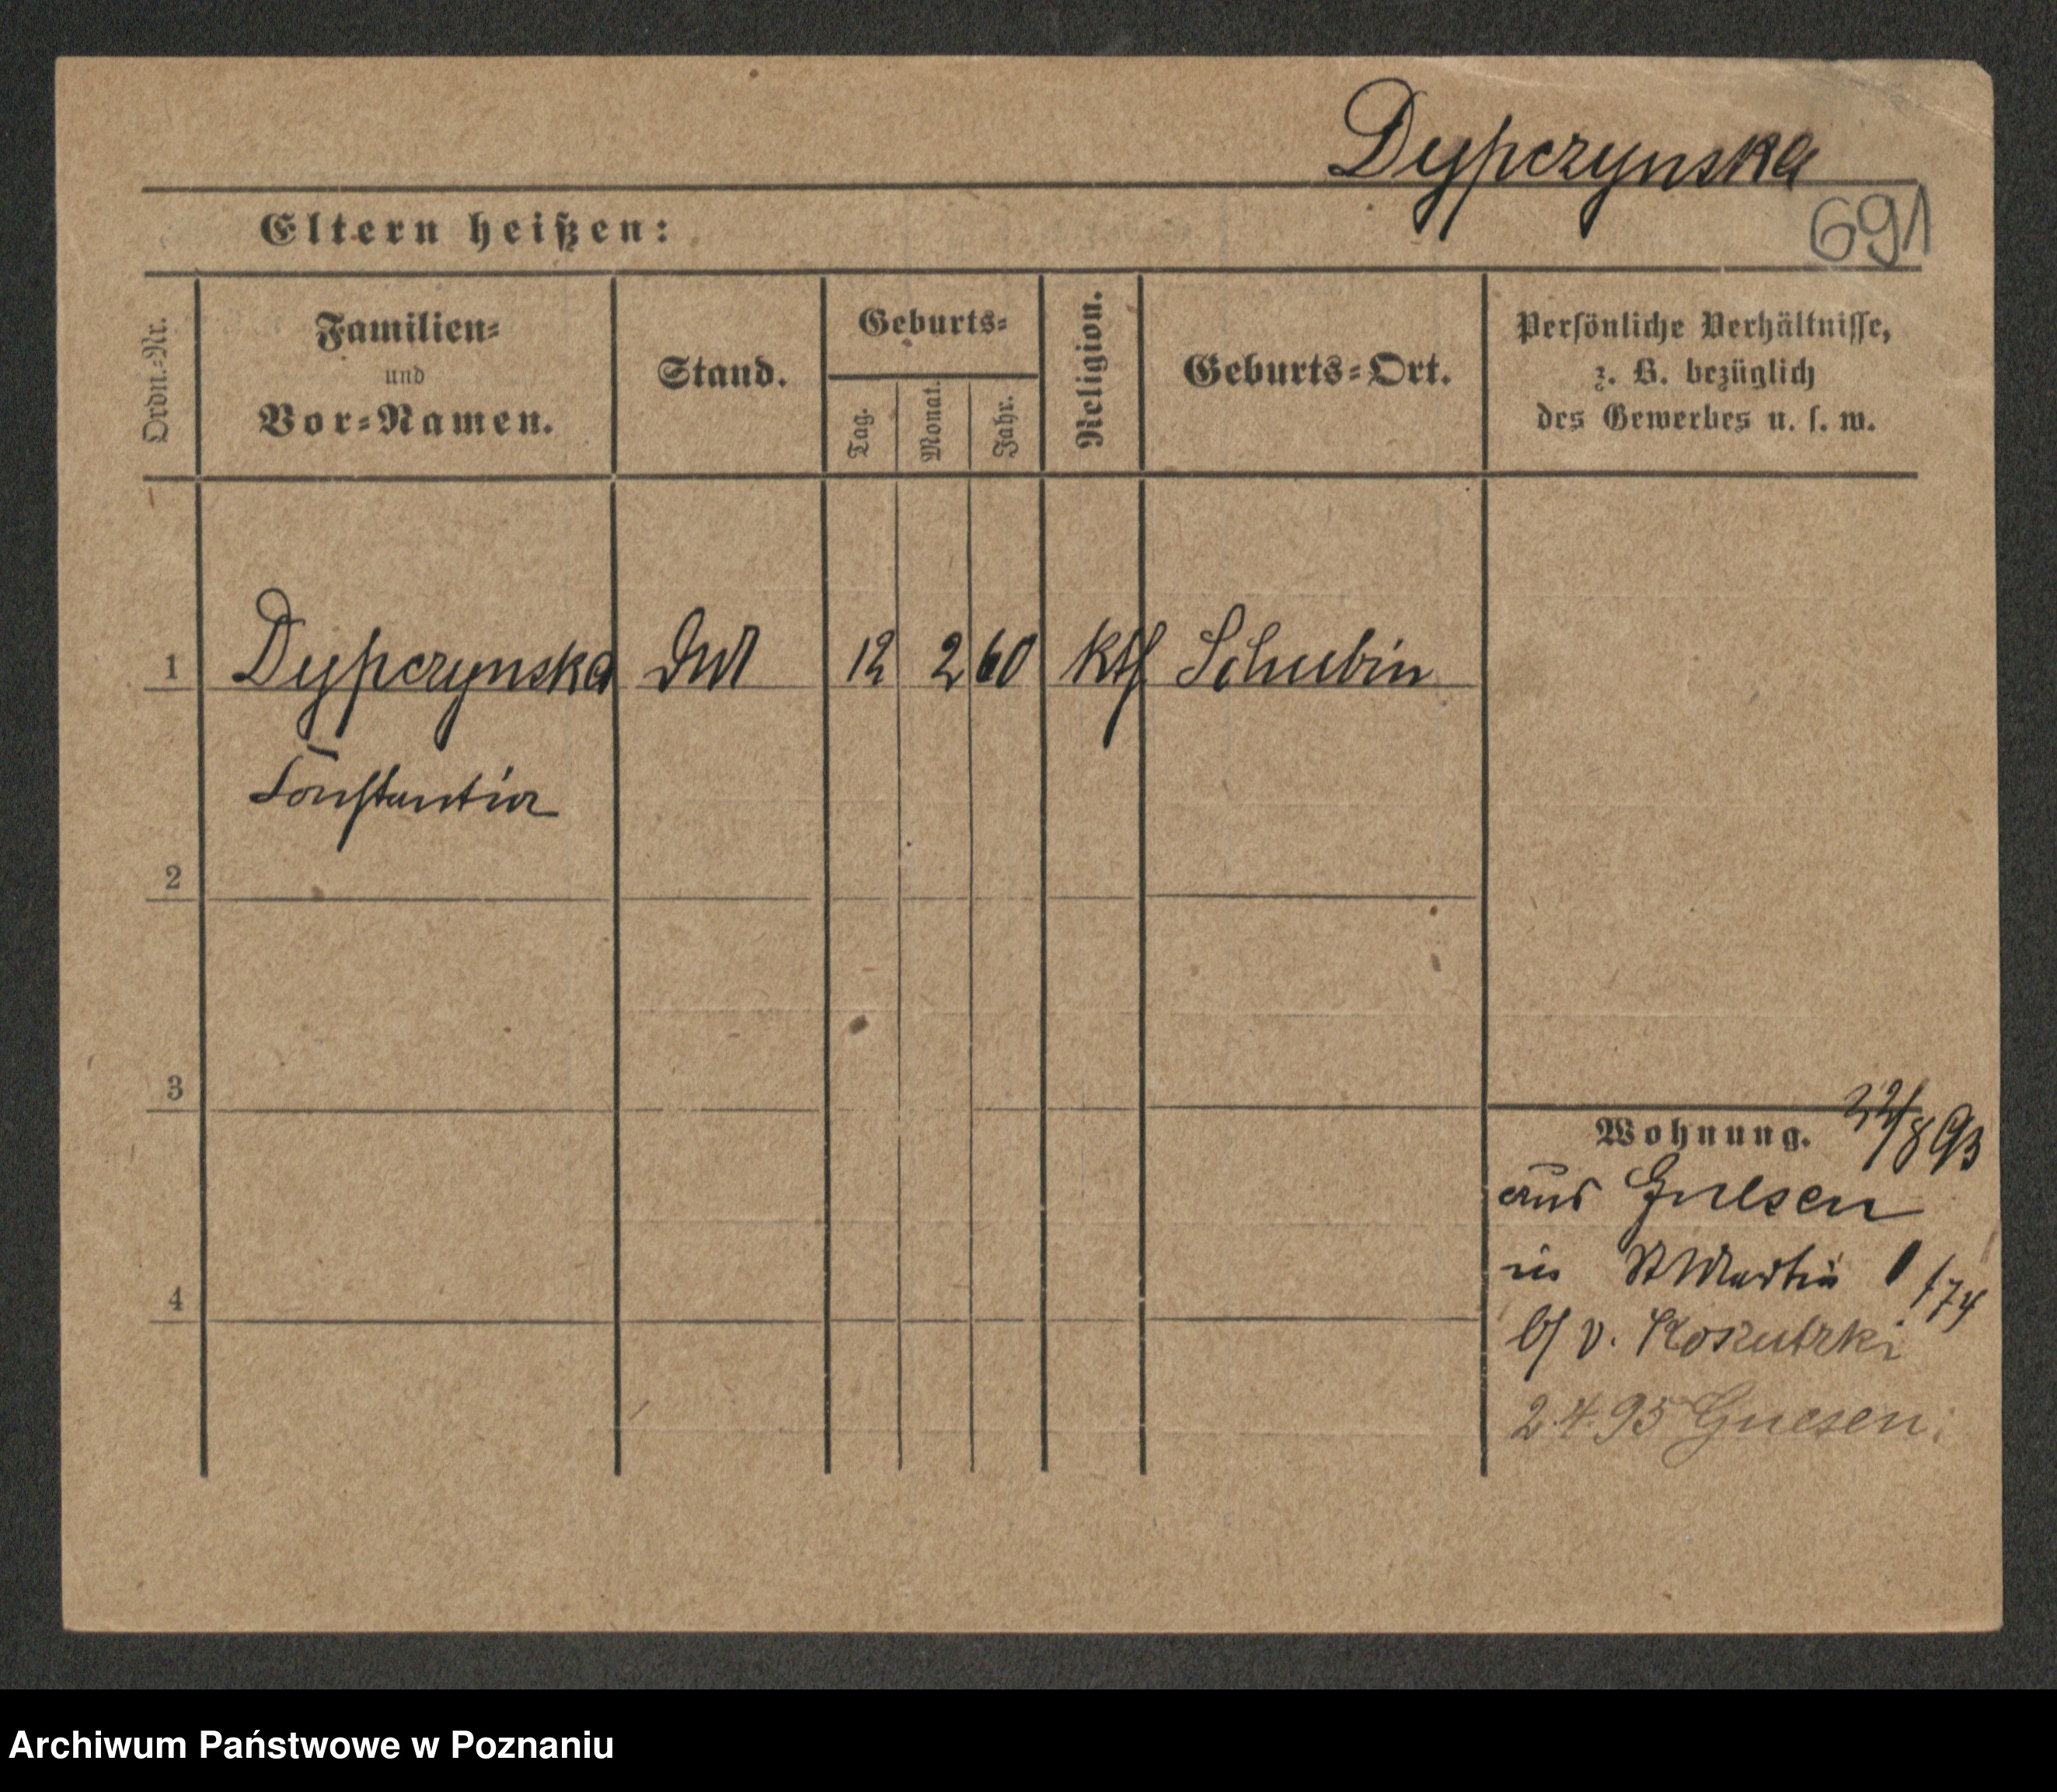 Dypczynska
691
Eltern heißen:
Ordn.=Nr.
Familien=
und
Vor=Namen.
Stand.
Geburts=
Tag.
Monat.
Jahr.
Religion.
Geburts=Ort.
Persönliche Verhältnisse,
z. B. bezüglich
des Gewerbes u. s. w.
1 Dypczynska 12 2 60 kth Schubin
Constantia
2
3
4
Wohnung. 22/8 93
aus Gnesen
in St Martin 1 /74
b/ v. Koszutzki
2.4.95 Gnesen.
Archiwum Państwowe w Poznaniu